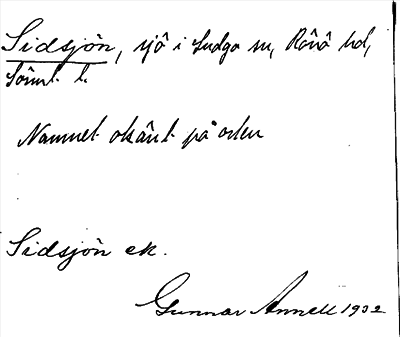 Sidsjön, sjö i Ludgo sn, Rönö hd,
Sörml. l.
Namnet okänt på orten
Sidsjön ek.
Gunnar Annell 1932